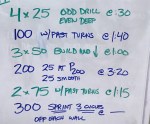 4 x 25 ODD DRILL @ :30
EVEN DEEP
100 W/FAST TURNS @ 1:40
3 x 50 BUILD @ 1:00
200 25 AT P200 @ 3:20
25 SMOOTH
2 x 75 W/FAST TURNS @ 1:15
300 SPRINT 3 CYCLES @
OFF EACH WALL